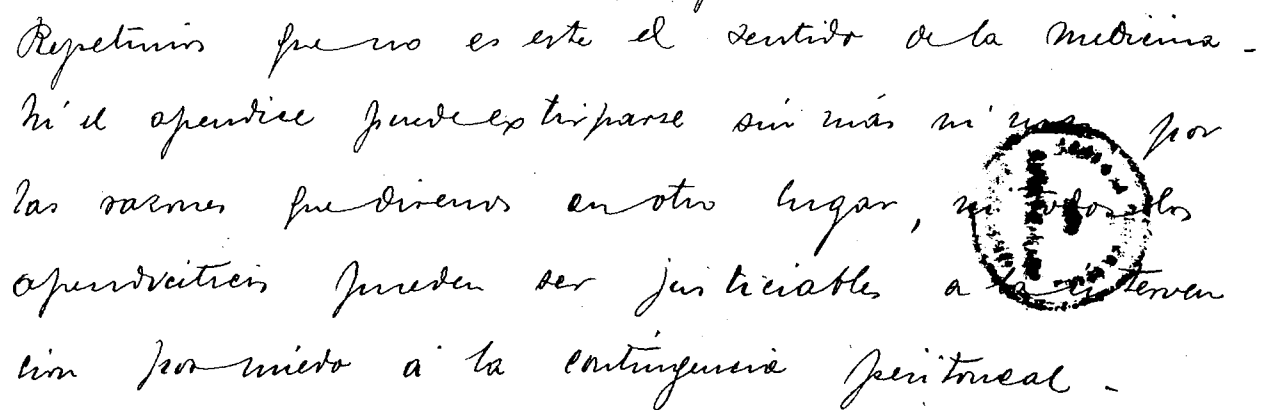 Repetimos que no es este el sentido de la medicina -
Ni el apendice puede extirparse sin más ni mas por
las razones que diremos en otro lugar, ni todos los
apendiciticos pueden ser justiciables a la interven
cion por miedo a la contingencia peritoneal -